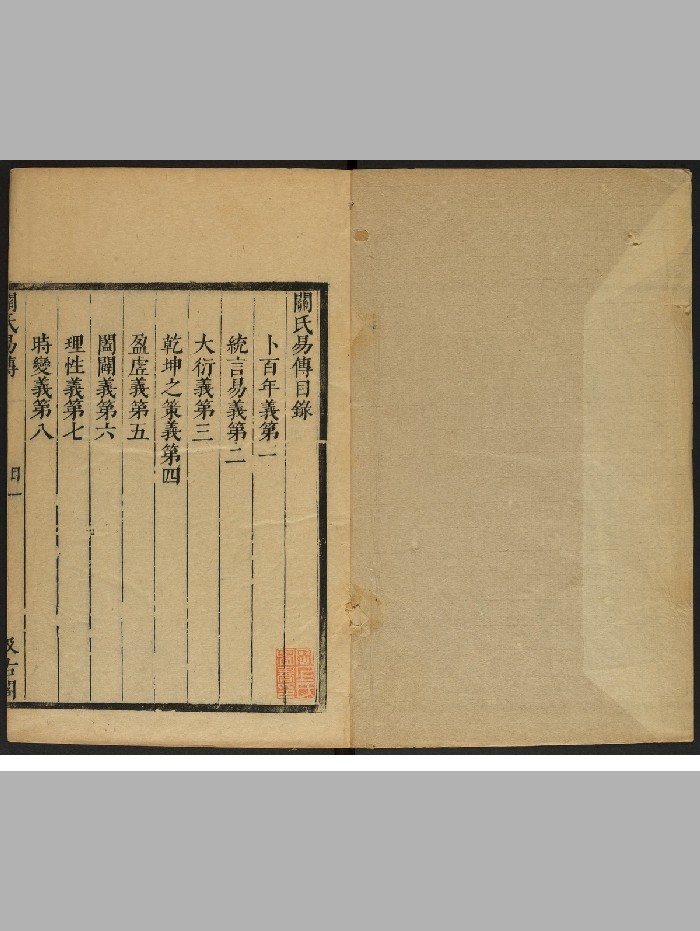 關氏易傳目錄
卜百年義第一
統言易義第二
大衍義第三
乾坤之策義第四
盈虛義第五
闔闢義第六
理性義第七
時變義第八
關氏易傳
目一
汲古閣